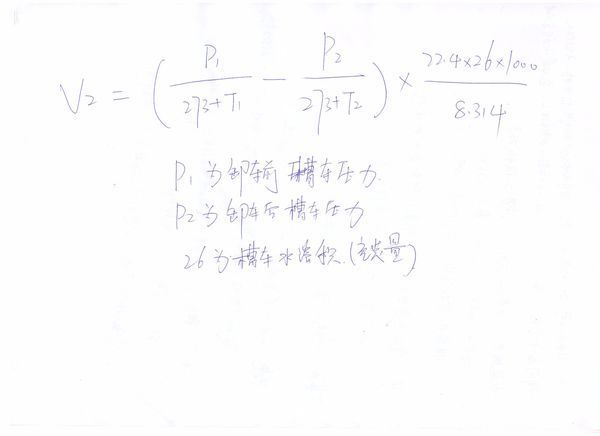 V₂ = ( P₁ / (273+T₁) − P₂ / (273+T₂) ) × 22.4×26×1000 / 8.314
P₁ 为卸车前槽车压力.
P₂ 为卸车后槽车压力
26 为槽车水溶积.(